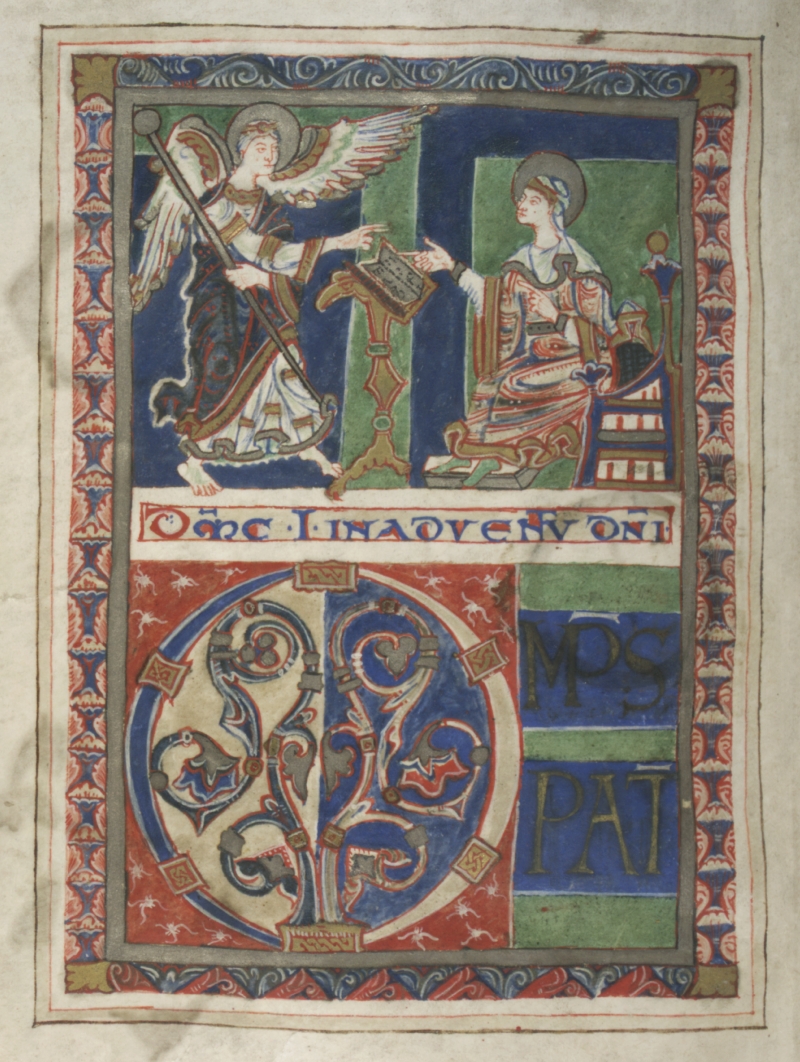 Dm̄c · I · IN ADVENTV DN̄I ·
O
MP̄S
PAT̄